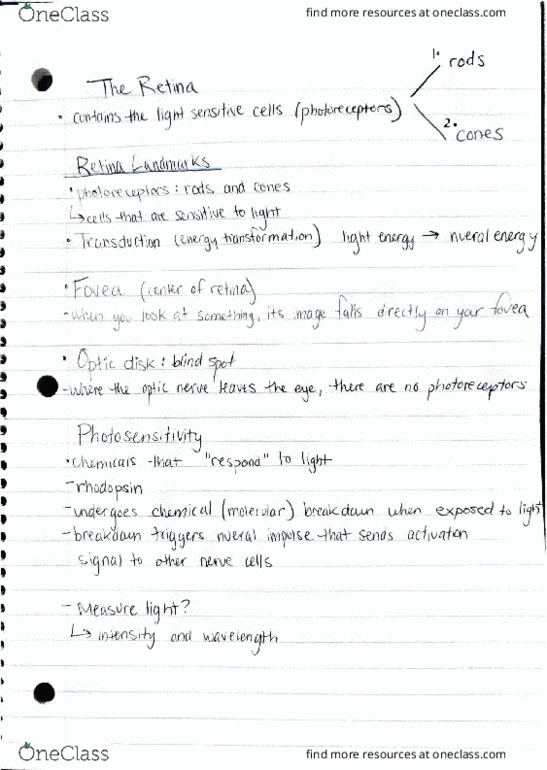 OneClass find more resources at oneclass.com
1. rods
The Retina
• contains the light sensitive cells (photoreceptors)
2. cones
Retina Landmarks
• photoreceptors: rods and cones
↳ cells that are sensitive to light
• Transduction (energy transformation) light energy → nueral energy
• Fovea (center of retina)
- when you look at something, its image falls directly on your fovea
• Optic disk: blind spot
- where the optic nerve leaves the eye, there are no photoreceptors
Photosensitivity
• chemicals that "respond" to light
- rhodopsin
- undergoes chemical (molecular) breakdown when exposed to light
- breakdown triggers nueral impulse that sends activation
signal to other nerve cells
- Measure light?
↳ intensity and wavelength
OneClass find more resources at oneclass.com